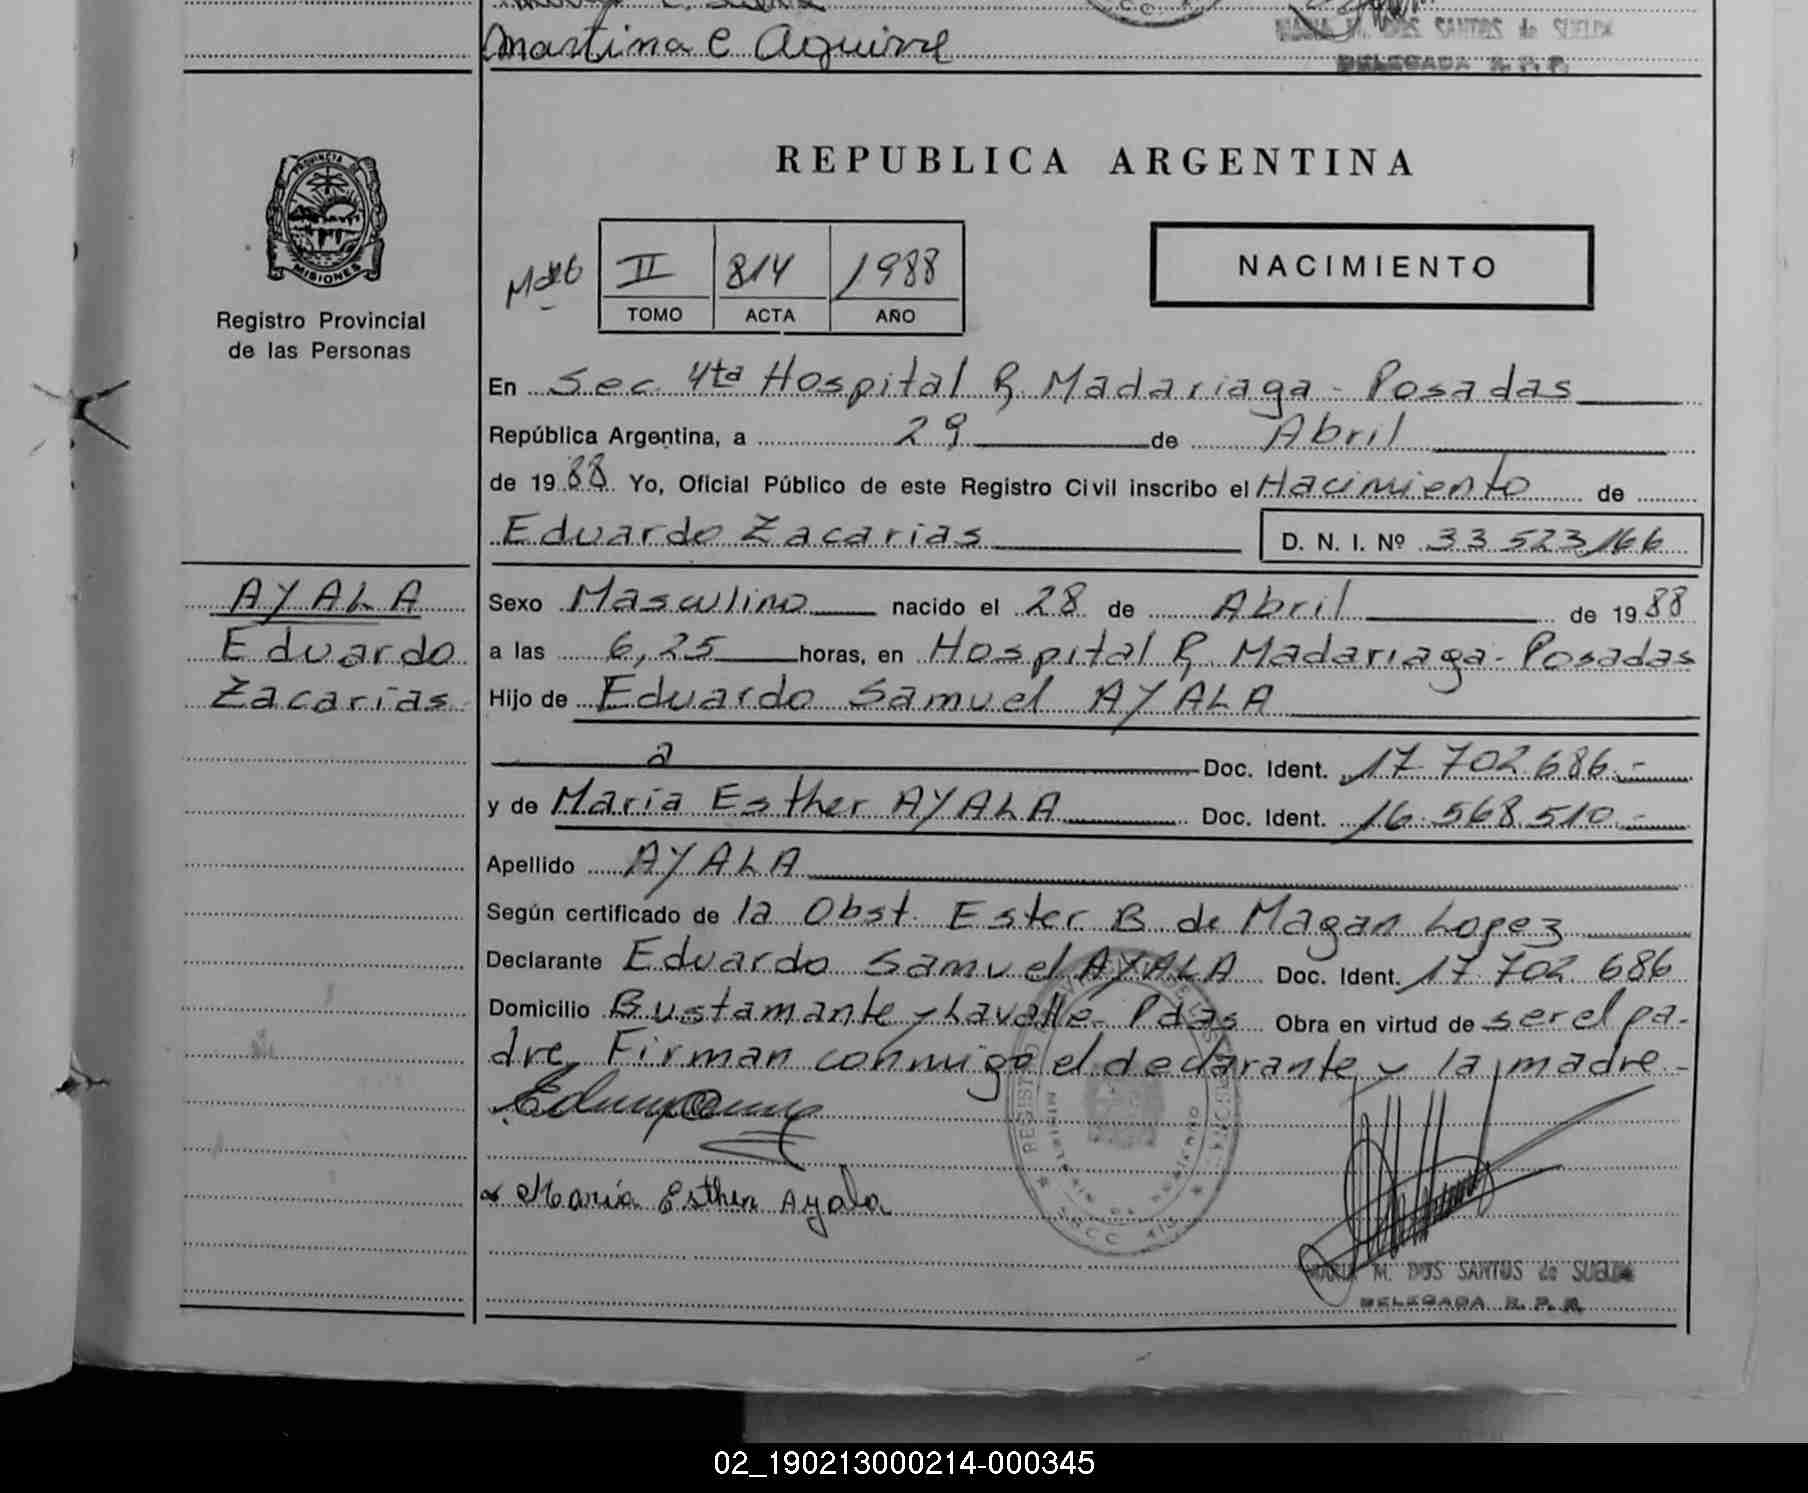 Martina C Aguirre
MARIA M. DOS SANTOS de SUELDO
DELEGADA R. P. P.
PROVINCIA DE
MISIONES
Registro Provincial
de las Personas
REPUBLICA ARGENTINA
II 814 1988
TOMO ACTA AÑO
NACIMIENTO
En Sec. 4ta Hospital R. Madariaga - Posadas
República Argentina, a 29 de Abril
de 1988 Yo, Oficial Público de este Registro Civil inscribo el Nacimiento de
Eduardo Zacarias D. N. I. Nº 33 523 166
AYALA
Eduardo
Zacarias
Sexo Masculino nacido el 28 de Abril de 1988
a las 6,25 horas, en Hospital R. Madariaga - Posadas
Hijo de Eduardo Samuel AYALA
a Doc. Ident. 17 702 686.-
y de Maria Esther AYALA Doc. Ident. 16 568 510.-
Apellido AYALA
Según certificado de la Obst. Ester B de Magan Lopez
Declarante Eduardo Samuel AYALA Doc. Ident. 17 702 686
Domicilio Bustamante y Lavalle - Pdas Obra en virtud de ser el pa-
dre, Firman conmigo el declarante y la madre -
Maria Esther Ayala
MARIA M. DOS SANTOS de SUELDO
DELEGADA R. P. P.
02_190213000214-000345